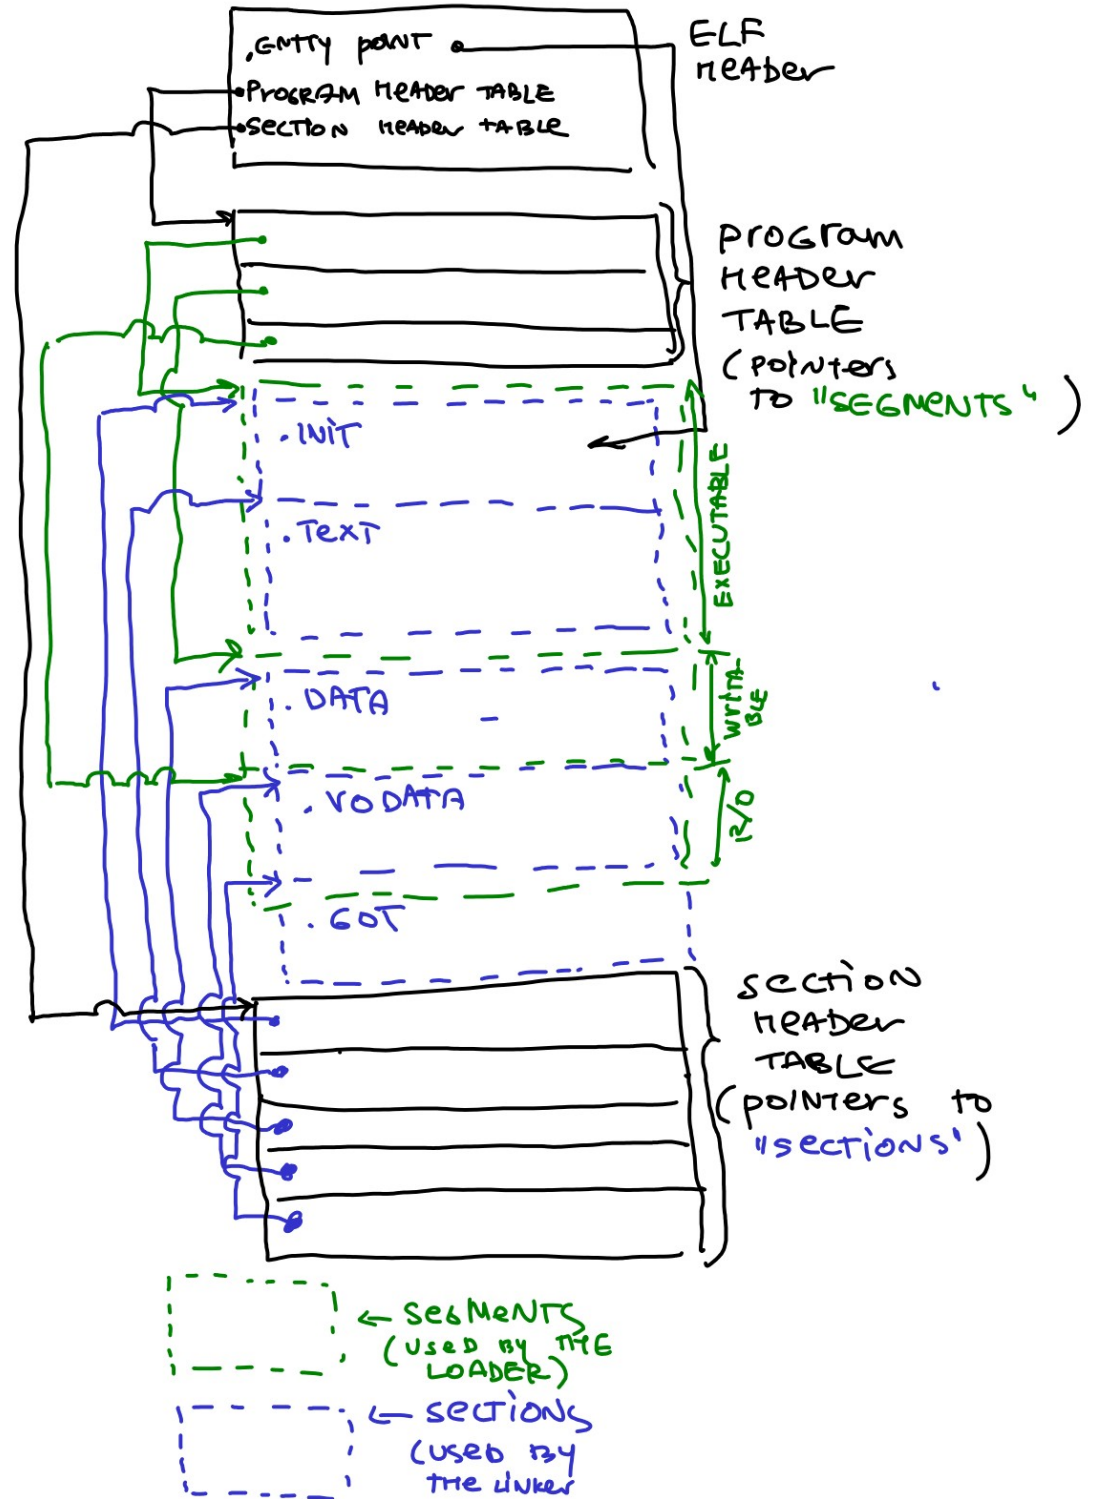 . ENTTY POINT
ELF
HEADER
PROGRAM HEADER TABLE
SECTION HEADER TABLE
PROGRAM
HEADER
TABLE
(POINTERS
TO "SEGMENTS")
.INIT
.TEXT
EXECUTABLE
.DATA
WRITA-
BLE
.RODATA
R/O
.GOT
SECTION
HEADER
TABLE
(POINTERS TO
"SECTIONS")
← SEGMENTS
(USED BY THE
LOADER)
← SECTIONS
(USED BY
THE LINKER